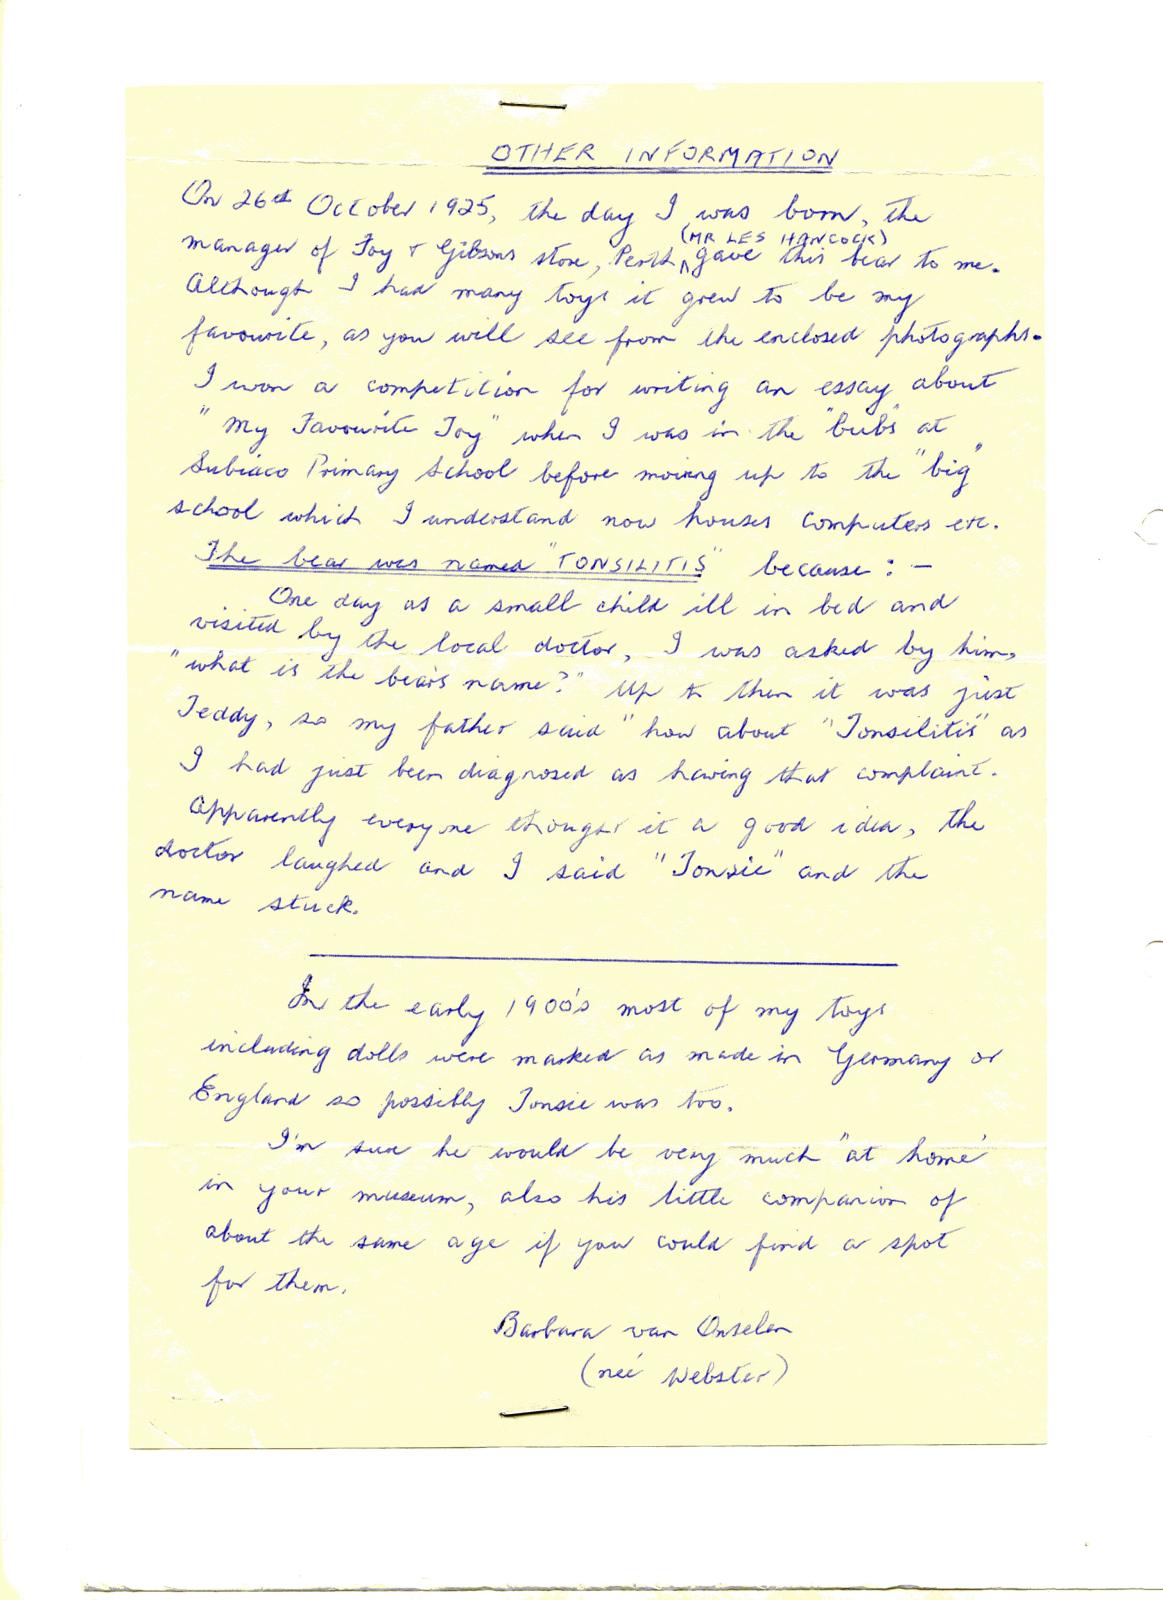 OTHER INFORMATION
On 26th October 1925, the day I was born, the
(MR LES HANCOCK)
manager of Foy & Gibsons store, Perth, ^ gave this bear to me.
Although I had many toys it grew to be my
favourite, as you will see from the enclosed photographs.
I won a competition for writing an essay about
"My Favourite Toy" when I was in the "bubs" at
Subiaco Primary School before moving up to the "big"
school which I understand now houses computers etc.
The bear was named "TONSILITIS" because : -
One day as a small child ill in bed and
visited by the local doctor, I was asked by him,
"what is the bear's name?" Up to then it was just
Teddy, so my father said "how about "Tonsilitis" as
I had just been diagnosed as having that complaint.
Apparently everyone thought it a good idea, the
doctor laughed and I said "Tonsie" and the
name stuck.
In the early 1900's most of my toys
including dolls were marked as made in Germany or
England so possibly Tonsie was too.
I'm sure he would be very much "at home"
in your museum, also his little companion of
about the same age if you could find a spot
for them.
Barbara van Onselen
(neé Webster)